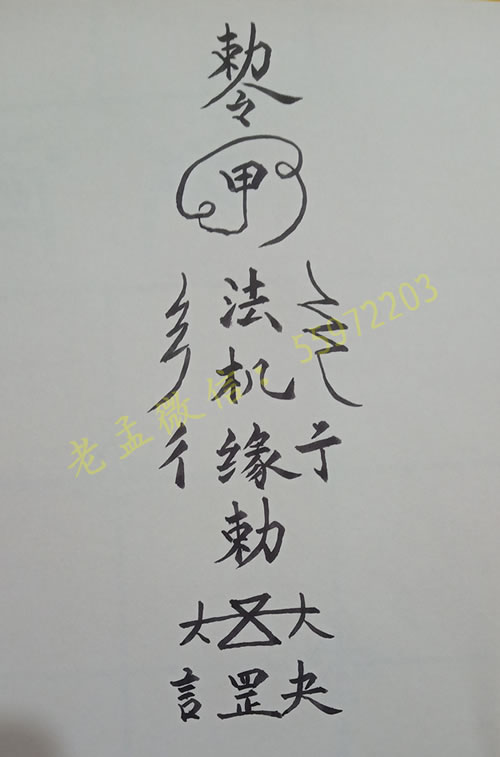 勅令
甲
法
机
彳缘亍
勅
大 大
言罡
老孟微信：